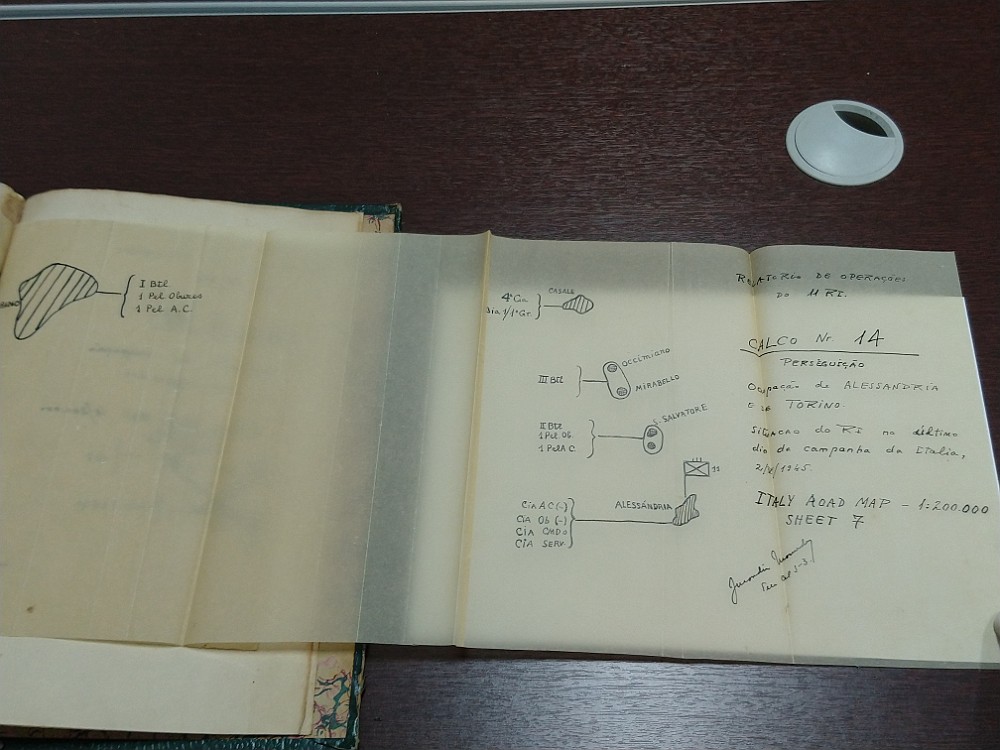 I Btl
1 Pel Obuses
1 Pel A.C.
CASALE
4ª Cia
III Btl
OCCIMIANO
MIRABELLO
II Btl
1 Pel Ob.
1 Pel A C.
S. SALVATORE
11
ALESSÁNDRIA
Cia AC (-)
Cia Ob (-)
Cia CMDO
Cia SERV.
RELATÓRIO DE OPERAÇÕES
DO 11 RI.
CALCO Nr. 14
PERSEGUIÇÃO
Ocupação de ALESSANDRIA
E de TORINO.
Situação do RI no último
dia da campanha da Italia,
2/V/1945.
ITALY ROAD MAP - 1:200.000
SHEET 7